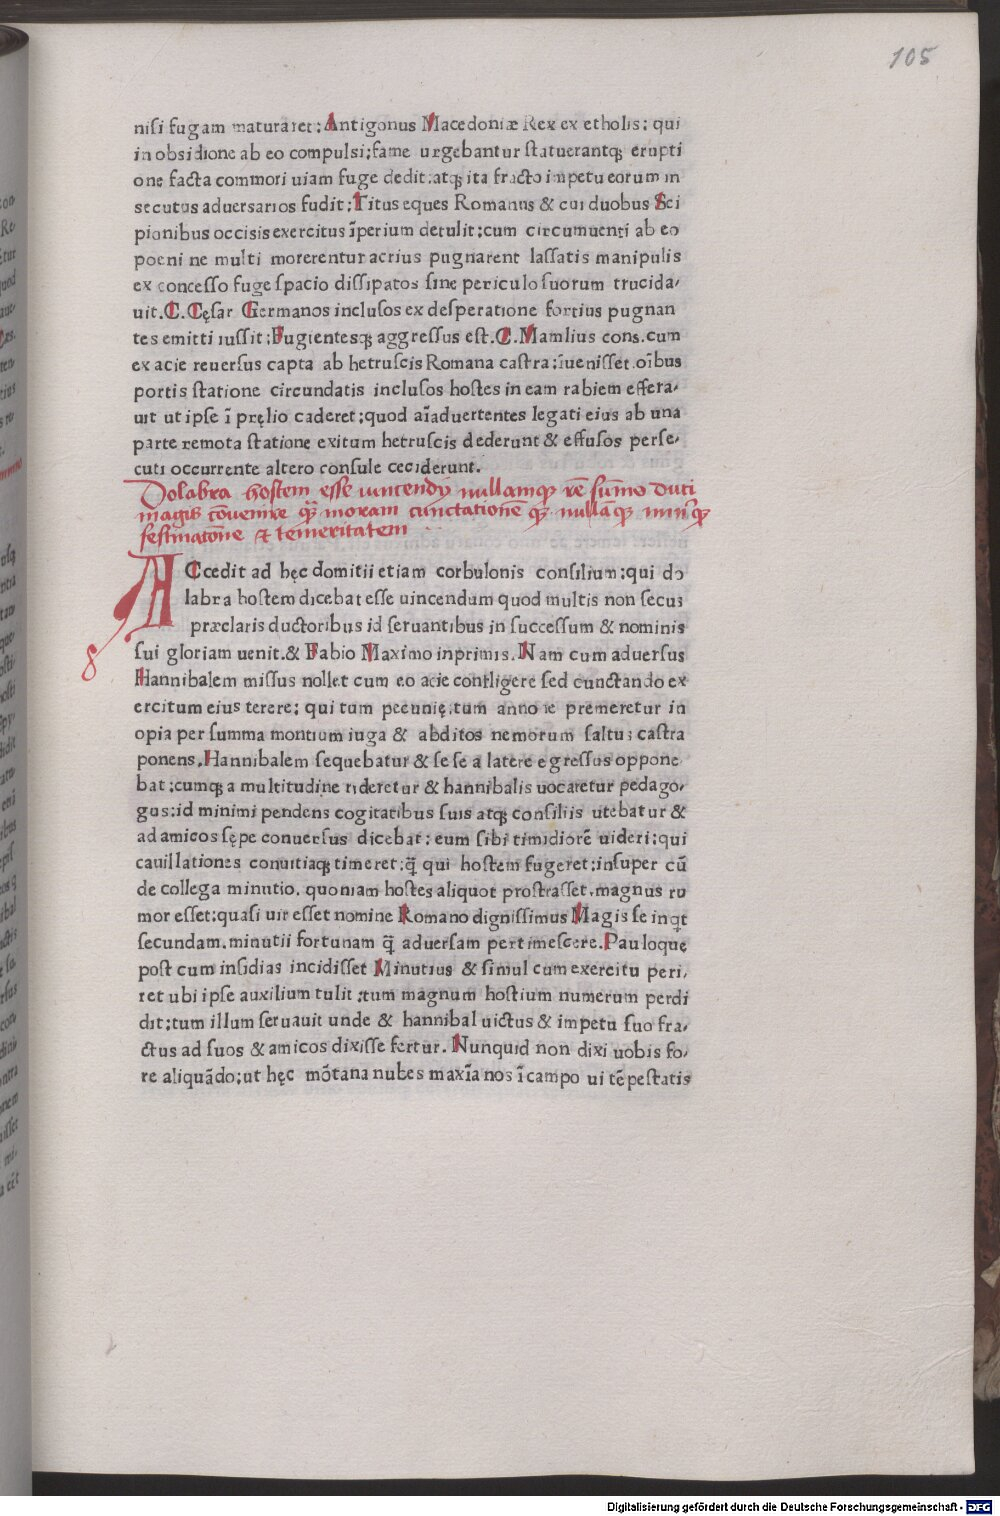 105
nisi fugam maturaret: Antigonus Macedoniæ Rex ex etholis: qui
in obsidione ab eo compulsi;fame urgebantur statuerantqꝫ erupti
one facta commori uiam fuge dedit:atqꝫ ita fracto impetu eorum in
secutus aduersarios fudit:Titus eques Romanus & cui duobus Sci
pionibus occisis exercitus īperium detulit;cum circumuenti ab eo
poeni ne multi morerentur acrius pugnarent lassatis manipulis
ex concesso fuge spacio dissipatos sine periculo suorum trucida/
uit.C.Cęsar Germanos inclusos ex desperatione fortius pugnan
tes emitti iussit:Fugientesqꝫ aggressus est.C.Mamlius cons.cum
ex acie reuersus capta ab hetruscis Romana castra:īuenisset.oībus
portis statione circundatis inclusos hostes in eam rabiem effera/
uit ut ipse ī pręlio caderet;quod aīaduertentes legati eius ab una
parte remota statione exitum hetruscis dederunt & effusos perse/
cuti occurrente altero consule ceciderunt.
Dolabra hostem esse vincendū nullamqꝫ rē sūmo duci
magis cōvenire qꝫ moram cunctationē qꝫ nullāqꝫ minꝰ qꝫ
festinatōne & temeritatem
ACcedit ad hęc domitii etiam corbulonis consilium:qui do
labra hostem dicebat esse uincendum quod multis non secus
præclaris ductoribus id seruantibus in successum & nominis
sui gloriam uenit.& Fabio Maximo inprimis.Nam cum aduersus
8
Hannibalem missus nollet cum eo acie confligere sed cunctando ex
ercitum eius terere; qui tum pecunię.tum annone premeretur in
opia per summa montium iuga & abditos nemorum saltus castra
ponens.Hannibalem sequebatur & se se a latere egressus oppone
bat:cumqꝫ a multitudine rideretur & hannibalis uocaretur pedago/
gus:id minimi pendens cogitatibus suis atqꝫ consiliis utebatur &
ad amicos sępe conuersus dicebat: eum sibi timidiorē uideri;qui
cauillationes conuitiaqꝫ timeret:q̄ qui hostem fugeret;insuper cū
de collega minutio. quoniam hostes aliquot prostrasset.magnus ru
mor esset;quasi uir esset nomine Romano dignissimus Magis se inqt
secundam.minutii fortunam q̄ aduersam pertimescere.Pauloquę
post cum insidias incidisset Minutius & simul cum exercitu peri/
ret ubi ipse auxilium tulit ;tum magnum hostium numerum perdi
dit;tum illum seruauit unde & hannibal uictus & impetu suo fra/
ctus ad suos & amicos dixisse fertur. Nunquid non dixi uobis fo/
re aliquādo;ut hęc mōtana nubes maxīa nos ī campo ui tēpestatis
Digitalisierung gefördert durch die Deutsche Forschungsgemeinschaft - DFG